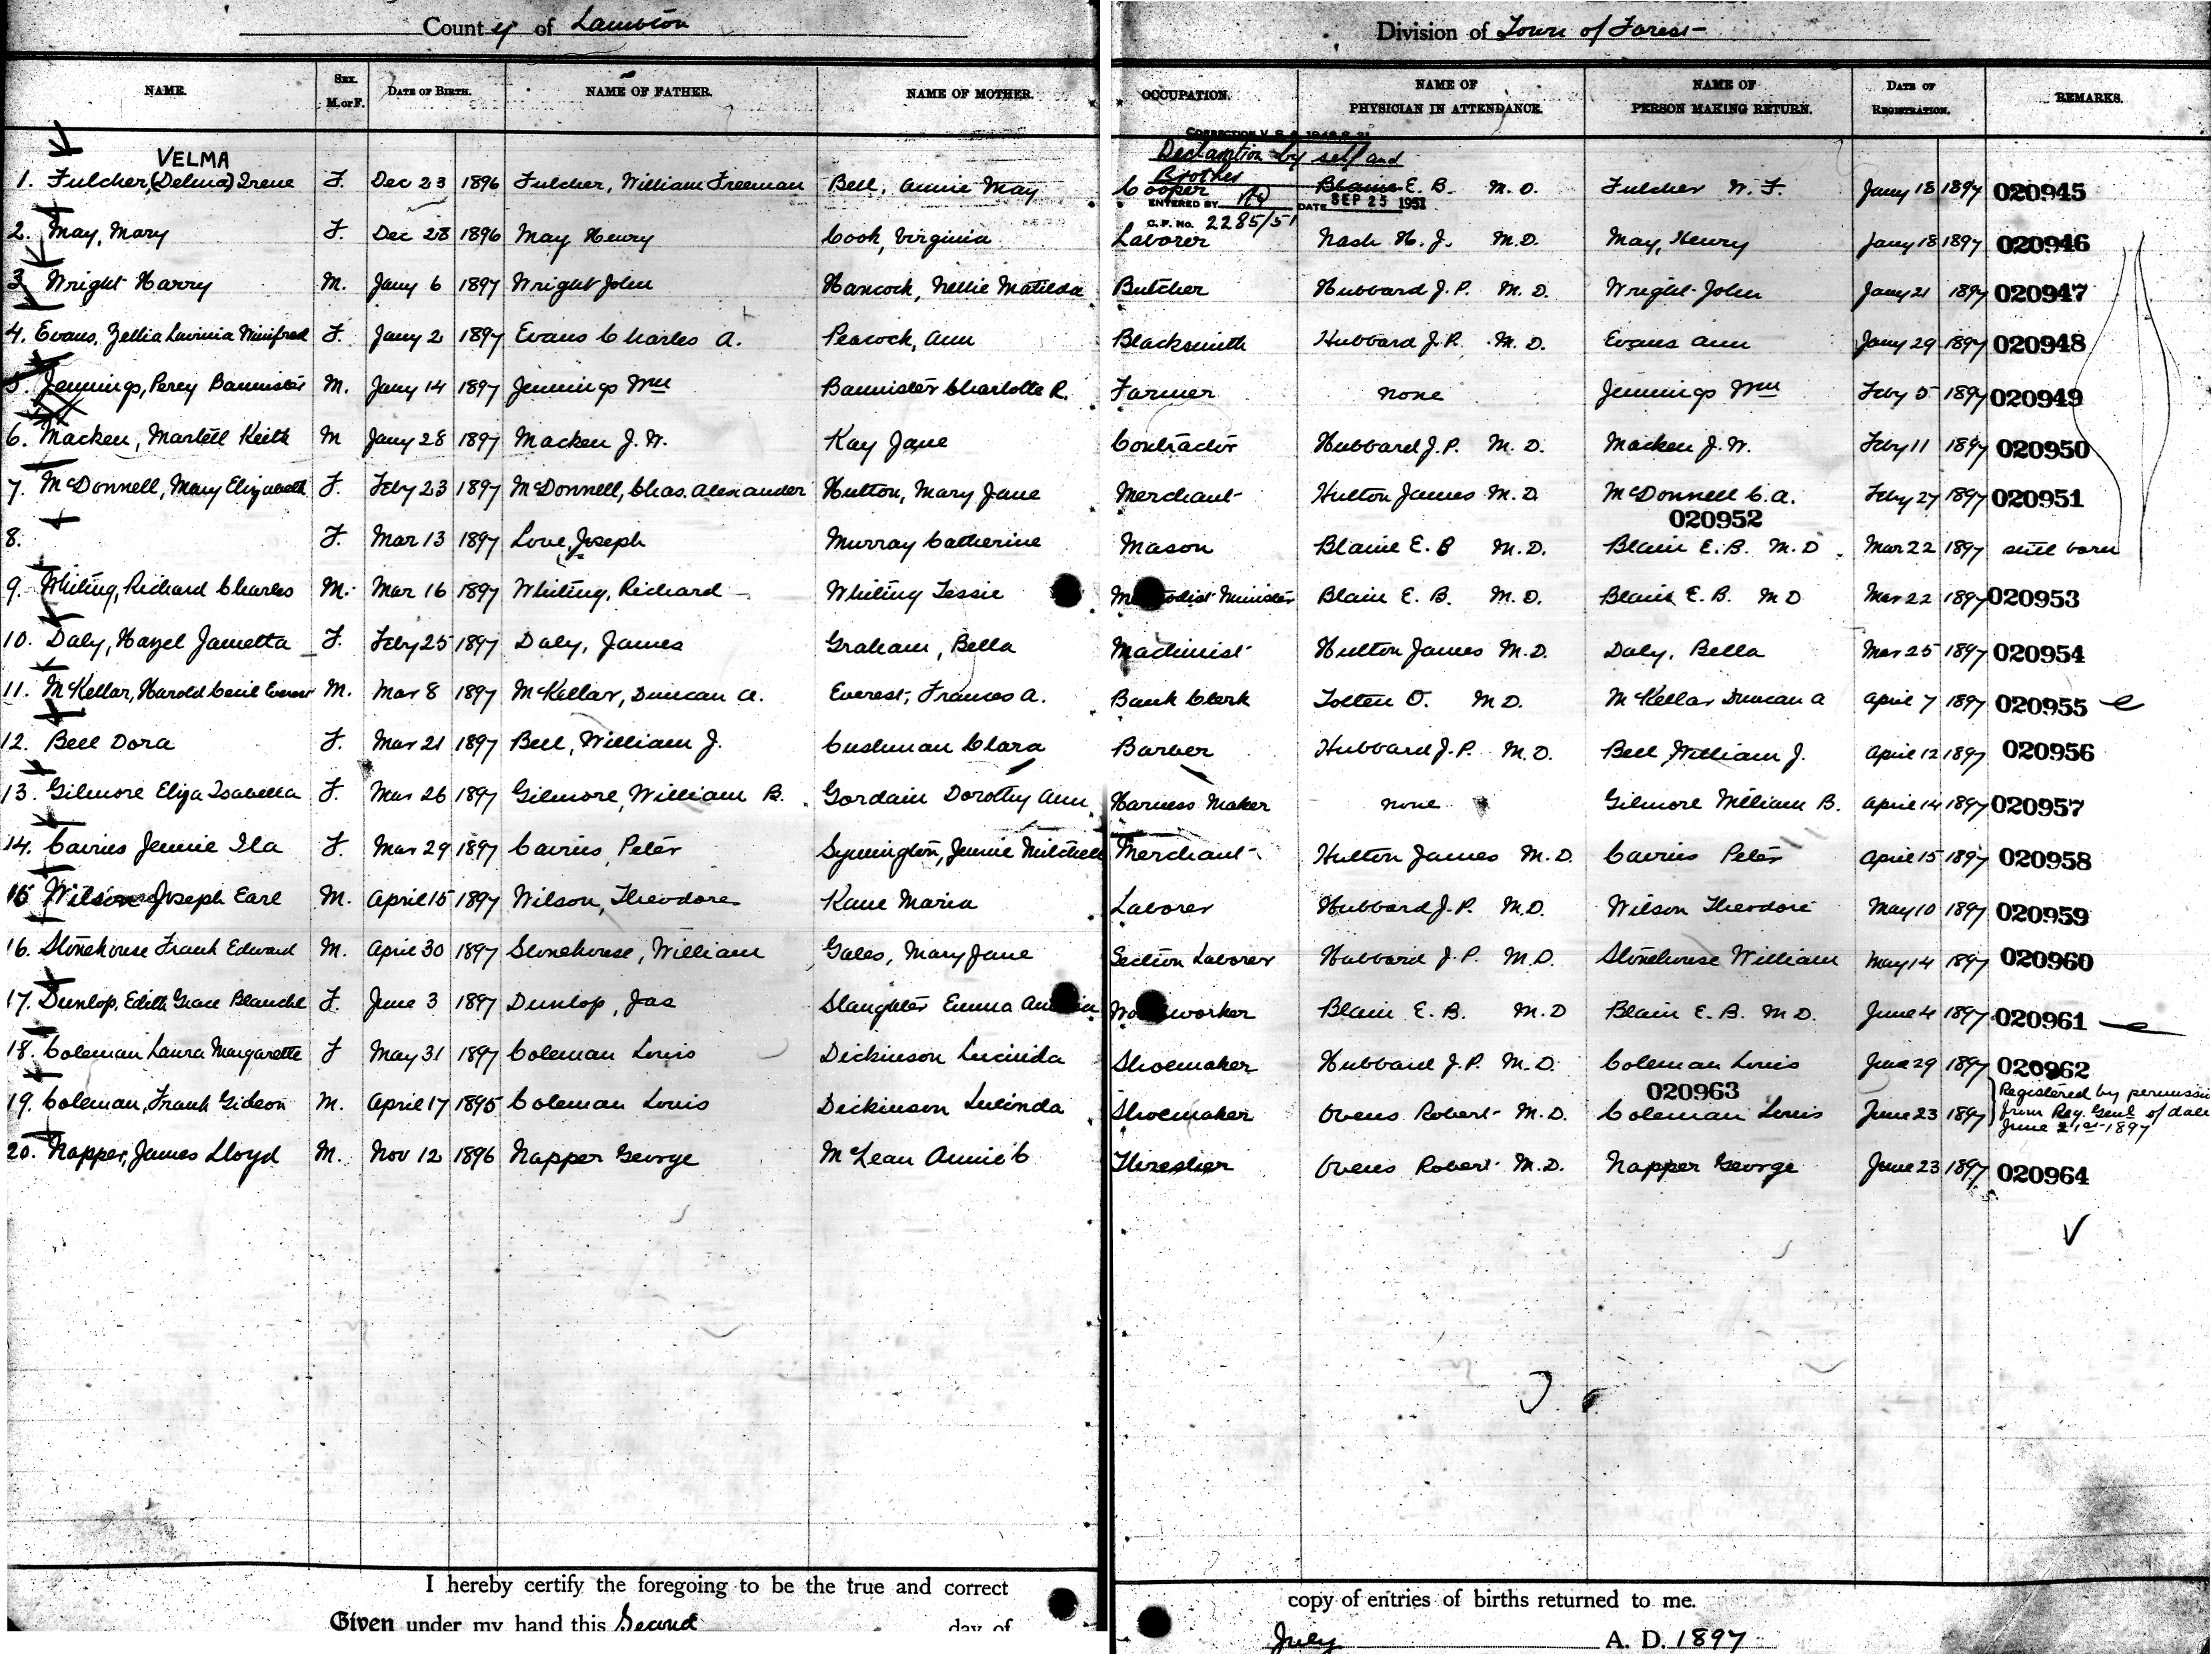 County of Lambton
Division of Town of Forest
NAME. SEX. M. or F. DATE OF BIRTH. NAME OF FATHER. NAME OF MOTHER. OCCUPATION. NAME OF PHYSICIAN IN ATTENDANCE. NAME OF PERSON MAKING RETURN. DATE OF REGISTRATION. REMARKS.
CORRECTION V. S. A. 1948 S. 21
Declaration by self and
Brother
VELMA
1. Fulcher, (Delma) Irene F. Dec 23 1896 Fulcher, William Freeman Bell, Annie May Cooper Blaine E. B. M. D. Fulcher W. F. Jany 18 1897 020945
ENTERED BY DATE SEP 25 1951
C.F. No. 2285/51
2. May, Mary F. Dec 28 1896 May Henry Cook, Virginia Laborer Nash H. J. M.D. May, Henry Jany 18 1897 020946
3. Wright Harry M. Jany 6 1897 Wright John Hancock, Nellie Matilda Butcher Hubbard J. P. M. D. Wright John Jany 21 1897 020947
4. Evans, Zellia Lavinia Winifred F. Jany 2 1897 Evans Charles A. Peacock, Ann Blacksmith Hubbard J. P. M. D. Evans Ann Jany 29 1897 020948
5. Jennings, Percy Bannister M. Jany 14 1897 Jennings Wm Bannister Charlotte R. Farmer none Jennings Wm Feby 5 1897 020949
6. Macken, Martell Keith M Jany 28 1897 Macken J. W. Kay Jane Contractor Hubbard J. P. M. D. Macken J. W. Feby 11 1897 020950
7. McDonnell, Mary Elizabeth F. Feby 23 1897 McDonnell, Chas. Alexander Hutton, Mary Jane Merchant Hutton James M. D. McDonnell C. A. Feby 27 1897 020951
020952
8. F. Mar 13 1897 Love, Joseph Murray Catherine Mason Blaine E. B M. D. Blain E. B. M. D. Mar 22 1897 still born
9. Whiting, Richard Charles M. Mar 16 1897 Whiting, Richard Whiting Tessie M odist Minister Blain E. B. M. D. Blain E. B. M D Mar 22 1897 020953
10. Daly, Hazel Jametta F. Feby 25 1897 Daly, James Graham, Bella Machinist Hutton James M. D. Daly, Bella Mar 25 1897 020954
11. McKellar, Harold Cecil Everest M. Mar 8 1897 McKellar, Duncan A. Everest, Frances A. Bank Clerk Totten O. M D. McKellar Duncan A April 7 1897 020955
12. Bell Dora F. Mar 21 1897 Bell, William J. Cushman Clara Barber Hubbard J. P. M. D. Bell William J. April 12 1897 020956
13. Gilmore Eliza Isabella F. Mar 26 1897 Gilmore, William B. Gordain Dorothy Ann Harness Maker none Gilmore William B. April 14 1897 020957
14. Cairns Jennie Ila F. Mar 29 1897 Cairns, Peter Symington, Jennie Mitchell Merchant Hutton James M. D. Cairns Peter April 15 1897 020958
15 Wilson Joseph Earl M. April 15 1897 Wilson, Theodore Kane Maria Laborer Hubbard J. P. M. D. Wilson Theodore May 10 1897 020959
16. Stonehouse Frank Edward M. April 30 1897 Stonehouse, William Gales, Mary Jane Section Laborer Hubbard J. P. M. D. Stonehouse William May 14 1897 020960
17. Dunlop, Edith Grace Blanche F. June 3 1897 Dunlop, Jas Slaughter Emma Wo worker Blain E. B. M. D Blain E. B. M. D. June 4 1897 020961
18. Coleman Laura Margarette F May 31 1897 Coleman Louis Dickinson Lucinda Shoemaker Hubbard J. P. M. D. Coleman Louis June 29 1897 020962
020963
19. Coleman, Frank Gideon M. April 17 1895 Coleman Louis Dickinson Lucinda Shoemaker Ovens Robert M. D. Coleman Louis June 23 1897 Registered by permissi
from Reg. Genl of date
June 21st 1897
20. Napper, James Lloyd M. Nov 12 1896 Napper George McLean Annie C Thresher Ovens Robert M. D. Napper George June 23 1897 020964
I hereby certify the foregoing to be the true and correct copy of entries of births returned to me.
Given under my hand this Second day of July A. D. 1897